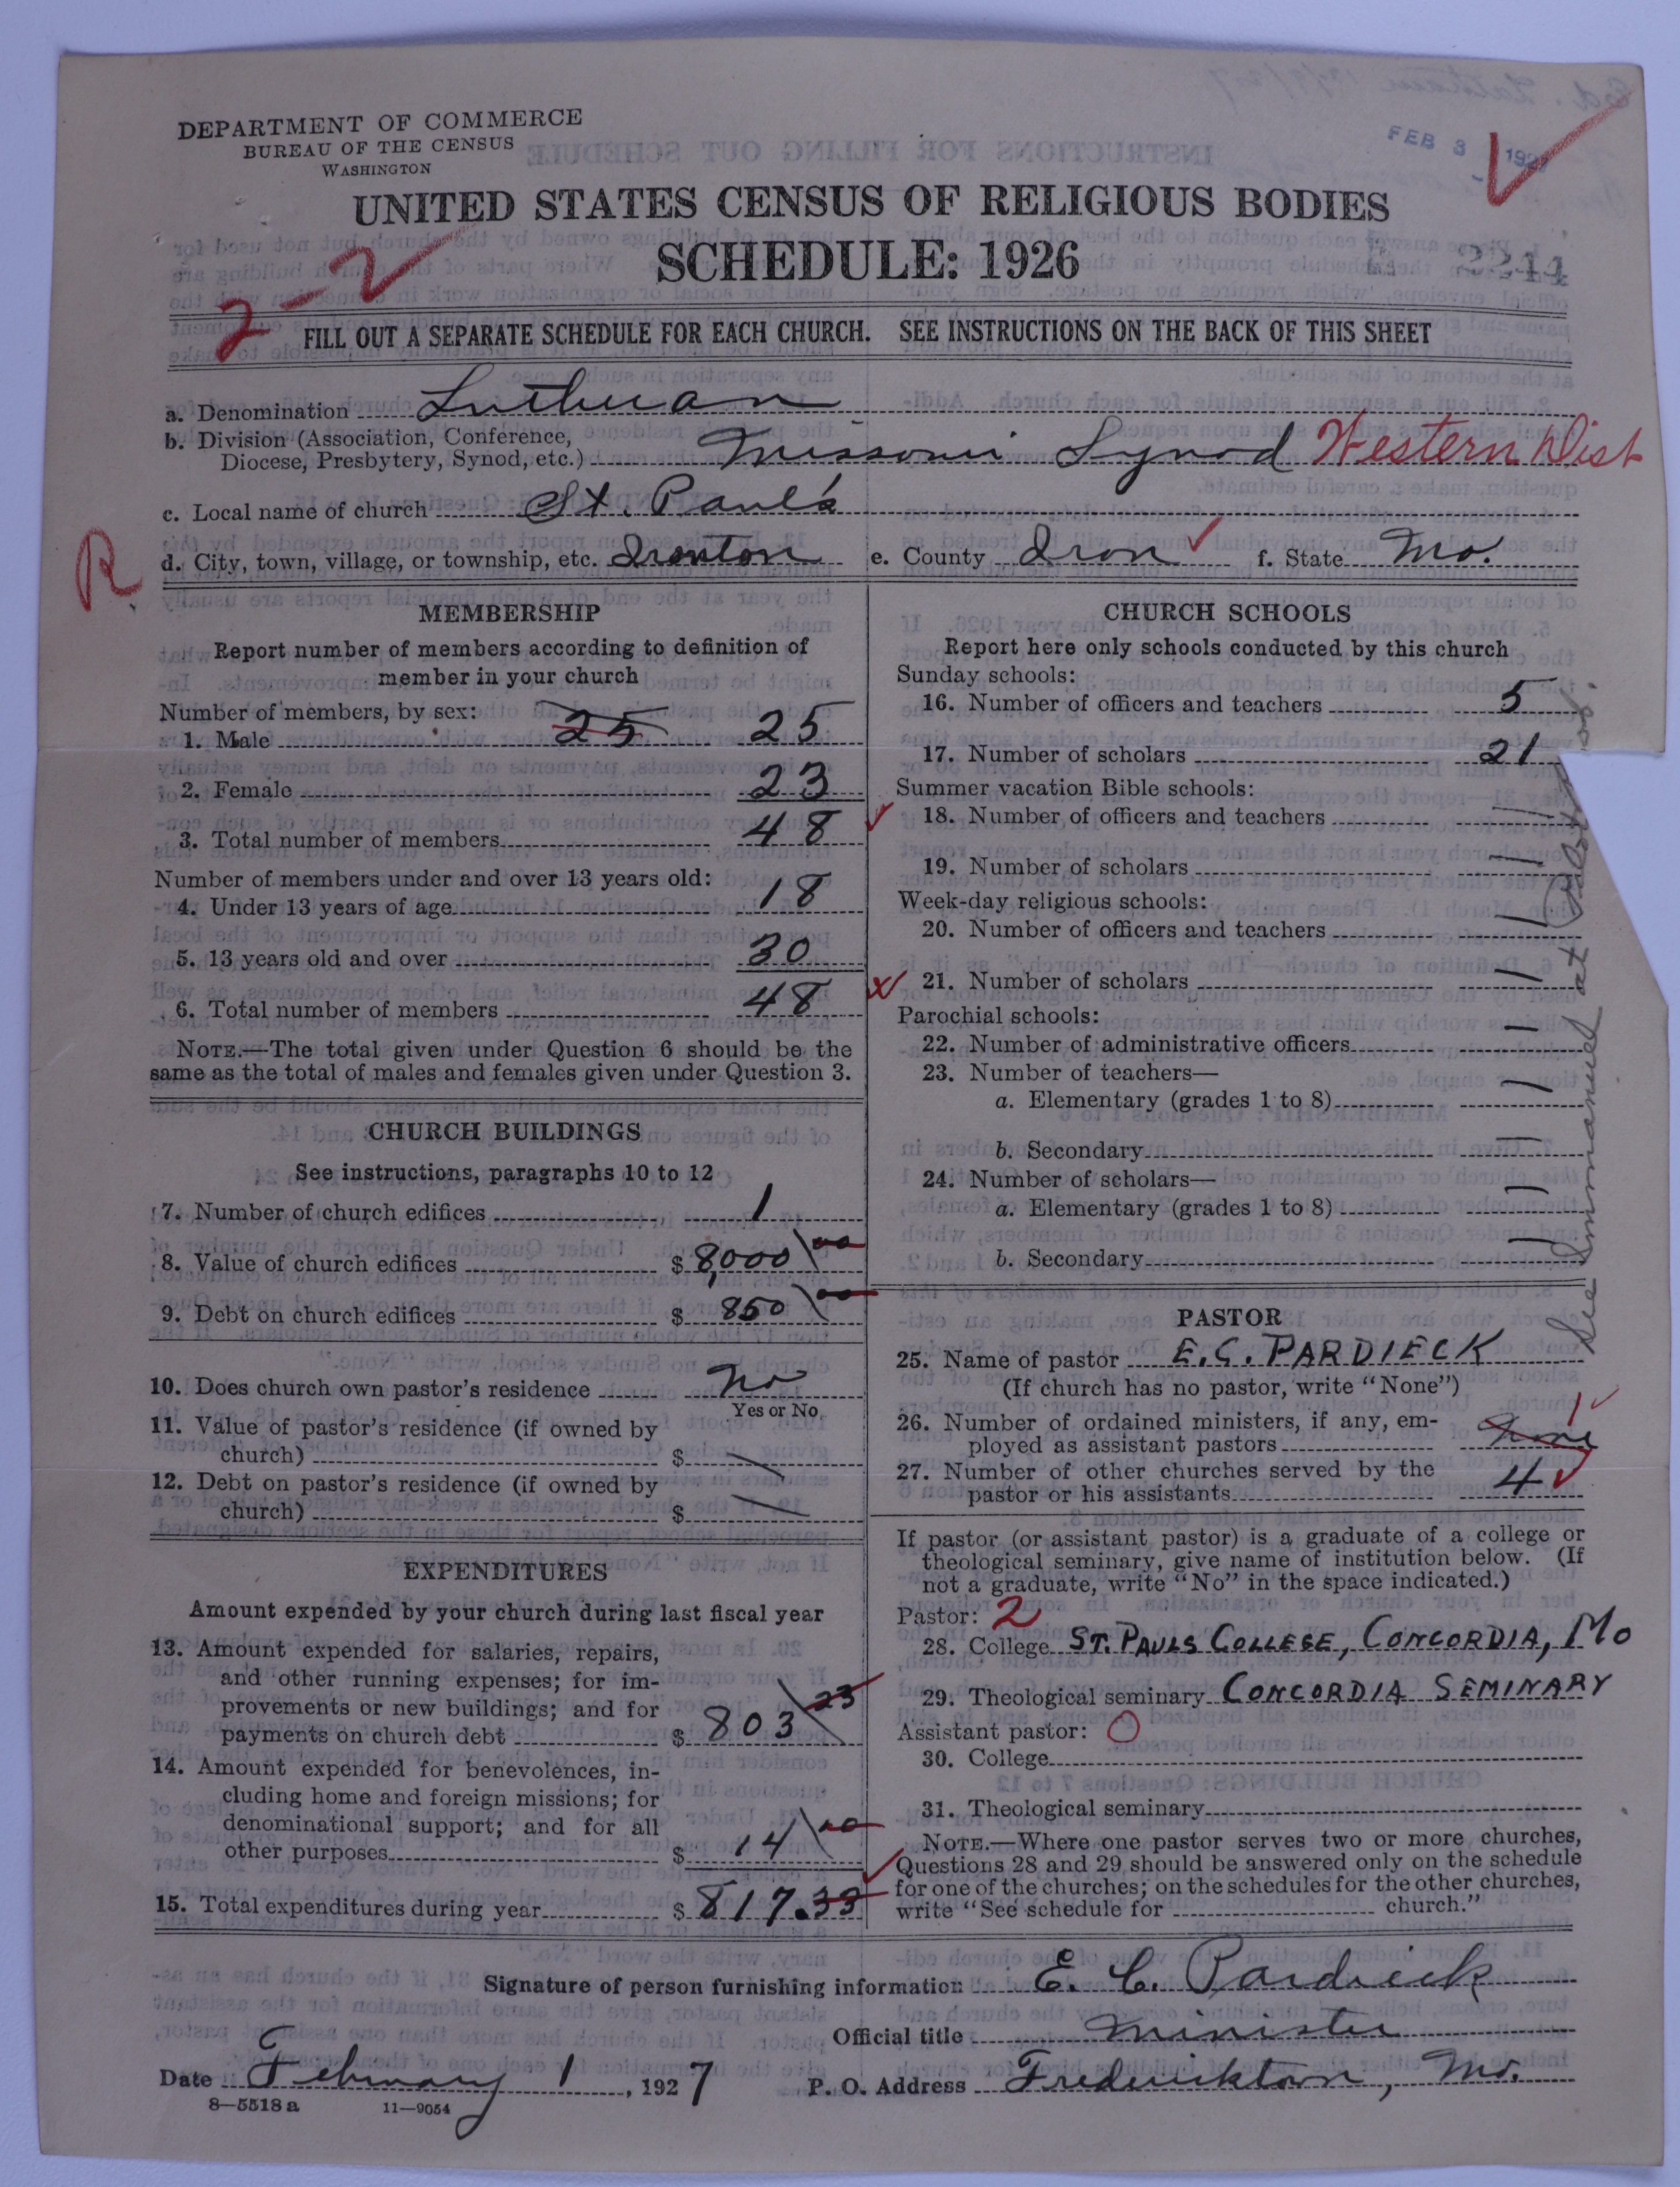 DEPARTMENT OF COMMERCE
BUREAU OF THE CENSUS
WASHINGTON
FEB 3 1927
UNITED STATES CENSUS OF RELIGIOUS BODIES
SCHEDULE: 1926
2244
2-2
FILL OUT A SEPARATE SCHEDULE FOR EACH CHURCH. SEE INSTRUCTIONS ON THE BACK OF THIS SHEET
a. Denomination Lutheran
b. Division (Association, Conference,
Diocese, Presbytery, Synod, etc.) Missouri Synod Western Dist
c. Local name of church St. Paul's
R
d. City, town, village, or township, etc. Ironton e. County Iron f. State Mo.
MEMBERSHIP
Report number of members according to definition of
member in your church
Number of members, by sex:
1. Male 25 25
2. Female 23
3. Total number of members 48
Number of members under and over 13 years old:
4. Under 13 years of age 18
5. 13 years old and over 30
6. Total number of members 48
NOTE.—The total given under Question 6 should be the
same as the total of males and females given under Question 3.
CHURCH BUILDINGS
See instructions, paragraphs 10 to 12
7. Number of church edifices 1
8. Value of church edifices $ 8,000 00
9. Debt on church edifices $ 850 00
10. Does church own pastor's residence No
Yes or No
11. Value of pastor's residence (if owned by
church) $ —
12. Debt on pastor's residence (if owned by
church) $ —
EXPENDITURES
Amount expended by your church during last fiscal year
13. Amount expended for salaries, repairs,
and other running expenses; for im-
provements or new buildings; and for
payments on church debt $ 803 23
14. Amount expended for benevolences, in-
cluding home and foreign missions; for
denominational support; and for all
other purposes $ 14 00
15. Total expenditures during year $ 817.33
CHURCH SCHOOLS
Report here only schools conducted by this church
Sunday schools:
16. Number of officers and teachers 5
17. Number of scholars 21
Summer vacation Bible schools:
18. Number of officers and teachers —
19. Number of scholars —
Week-day religious schools:
20. Number of officers and teachers —
21. Number of scholars —
Parochial schools:
22. Number of administrative officers —
23. Number of teachers—
a. Elementary (grades 1 to 8) —
b. Secondary —
24. Number of scholars—
a. Elementary (grades 1 to 8) —
b. Secondary —
See Immanuel at
PASTOR
25. Name of pastor E. C. PARDIECK
(If church has no pastor, write "None")
26. Number of ordained ministers, if any, em-
ployed as assistant pastors None 1
27. Number of other churches served by the
pastor or his assistants 4
If pastor (or assistant pastor) is a graduate of a college or
theological seminary, give name of institution below. (If
not a graduate, write "No" in the space indicated.)
Pastor: 2
28. College ST. PAULS COLLEGE, CONCORDIA, MO
29. Theological seminary CONCORDIA SEMINARY
Assistant pastor: 0
30. College
31. Theological seminary
NOTE.—Where one pastor serves two or more churches,
Questions 28 and 29 should be answered only on the schedule
for one of the churches; on the schedules for the other churches,
write "See schedule for church."
Signature of person furnishing information E. C. Pardieck
Official title Minister
Date February 1, 1927 P. O. Address Fredericktown, Mo.
8—5518 a 11—9054